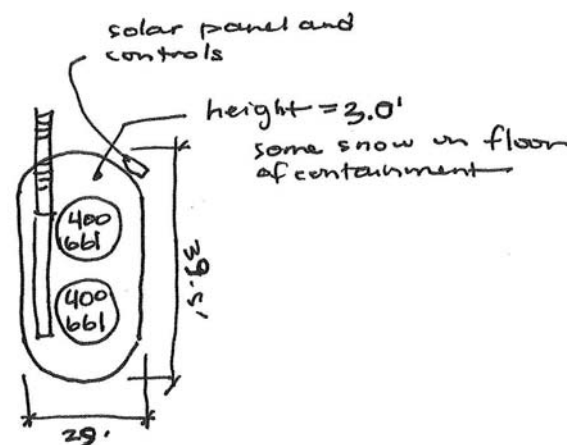 solar panel and
controls
height = 3.0'
some snow on floor
of containment
400
bbl
400
bbl
39.5'
29'